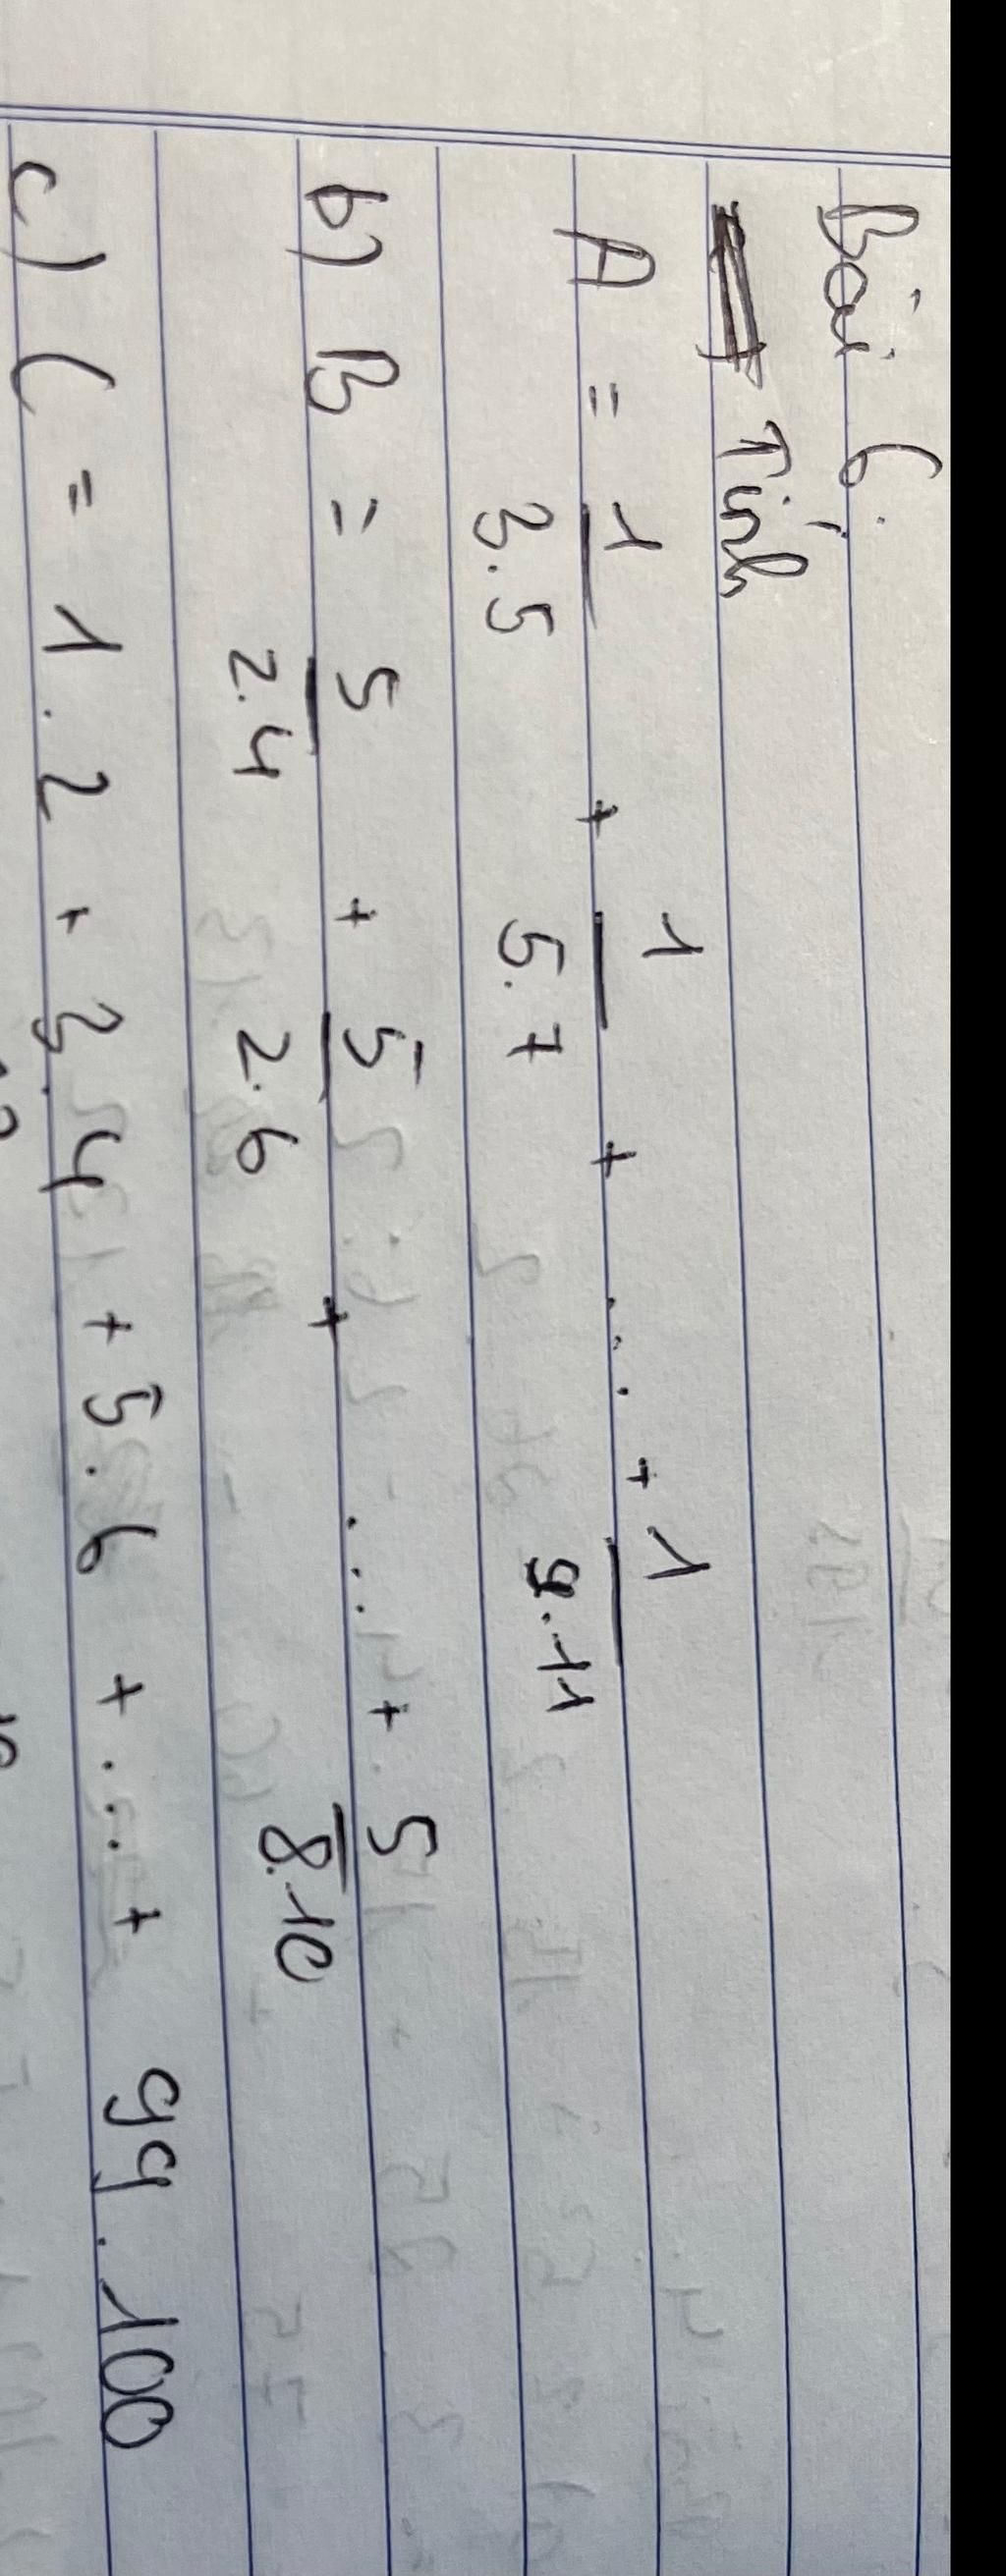 Bài 6.
Tính
A = 1/3.5 + 1/5.7 + ... + 1/9.11
b) B = 5/2.4 + 5/2.6 + ... + 5/8.10
c) C = 1.2 + 3.4 + 5.6 + ... + 99.100